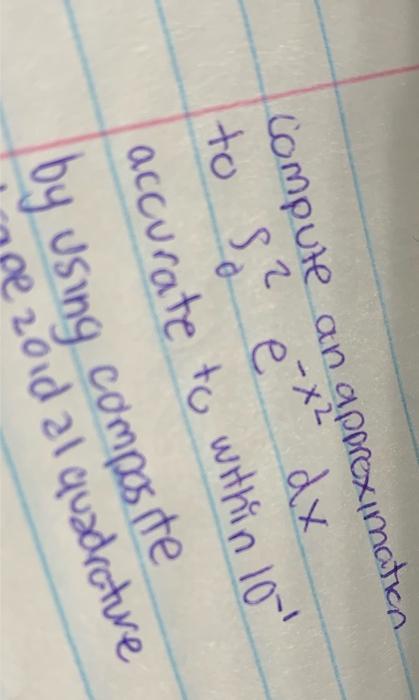 compute an approximation
to ∫₀² e^-x² dx
accurate to within 10^-1
by using composite
quadrature